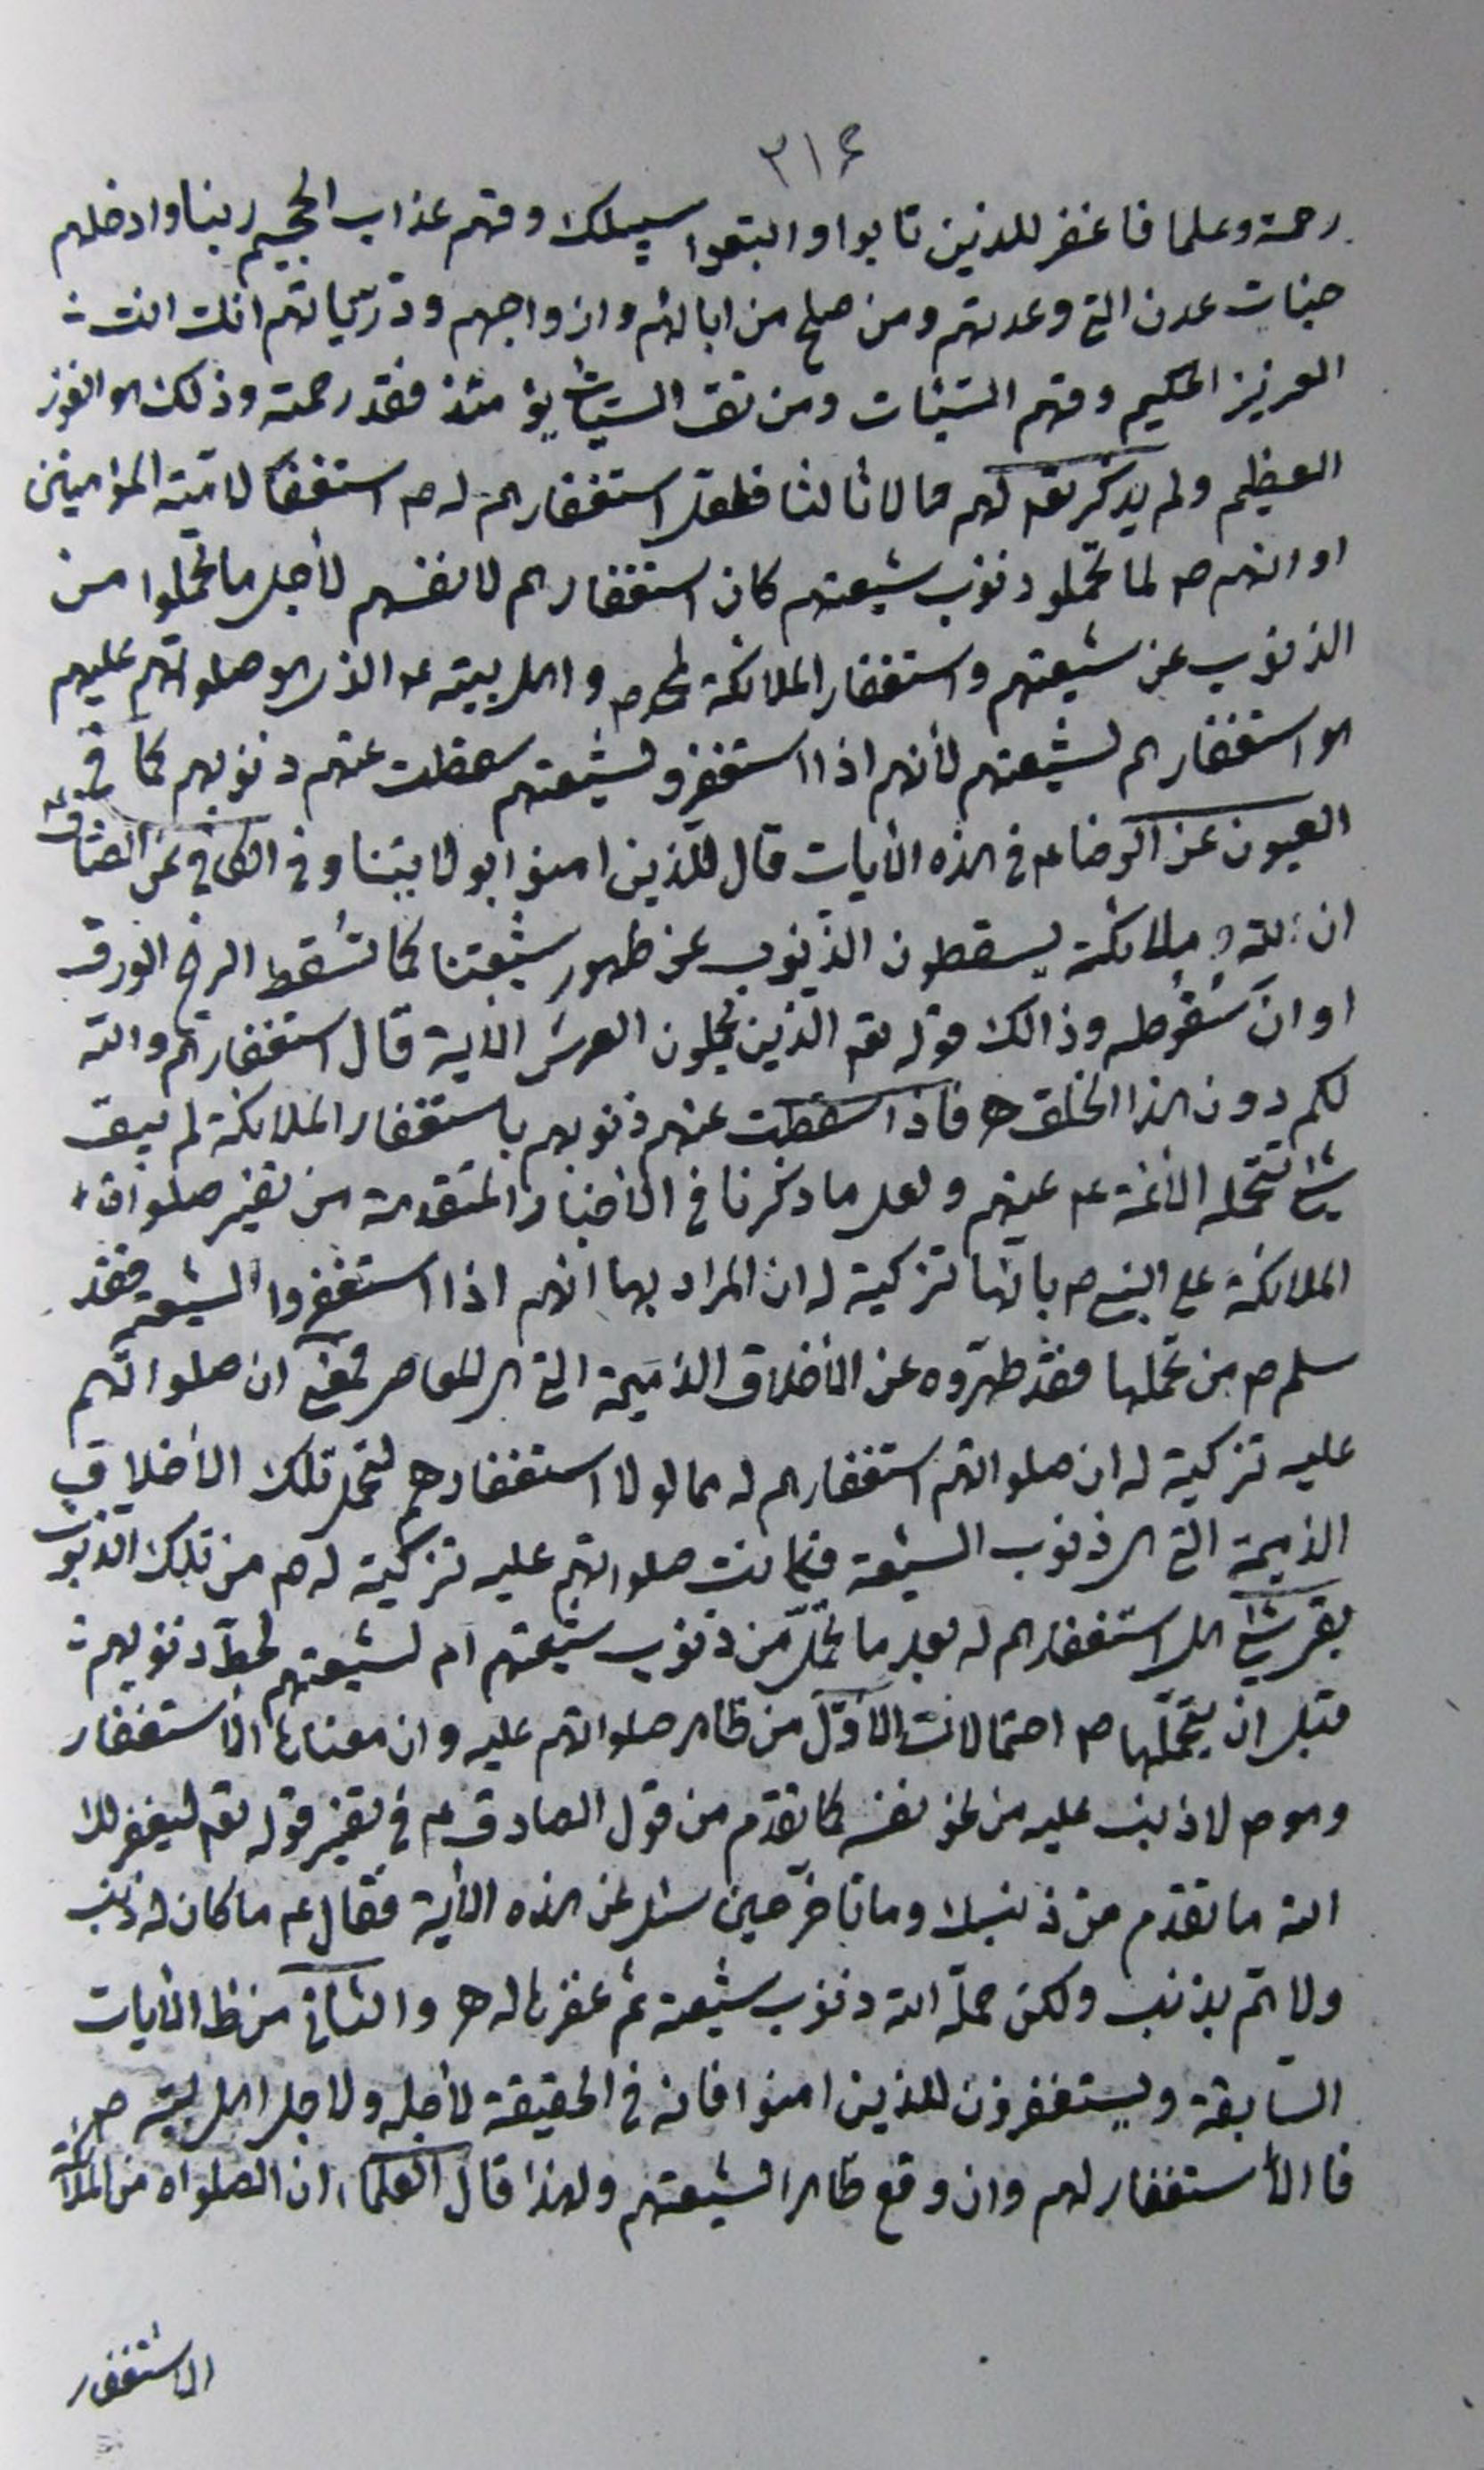 ٣١۶
رحمة وعلما فاغفر للذين تابوا واتبعوا سبيلك وقهم عذاب الجحيم ربنا وادخلهم
جنات عدن التي وعدتهم ومن صلح من ابائهم وازواجهم وذرّياتهم انك انت
العزيز الحكيم وقهم السّيئات ومن تق السّيئات يومئذ فقد رحمته وذلك هو الفوز
العظيم ولم يذكر تعـ لهم مالا ثالثا فلعل استغفارهم له ص استغفار لامّته المؤمنين
او انهم ص لما تحملو ذنوب شيعتهم كان استغفارهم لانفسهم لأجل ما تحملوا من
الذنوب عن شيعتهم واستغفار الملائكة لمحمد ص واهل بيته ع الذي هو صلواتهم عليهم
هو استغفارهم لشيعتهم لأنهم اذا استغفرو لشيعتهم سقطت عنهم ذنوبهم كما في
العيون عن الرضا ع في هذه الأيات قال للّذين امنوا بولايتنا وفي الكافي عن الصّادق ع
ان لله ملائكة يسقطون الذّنوب عن ظهور شيعتنا كما تسُقط الريح الورق
او ان سُقوطه وذالك قوله تعـ الّذين يحملون العرش الأية قال استغفارهم والله
لكم دون هذا الخلق ه فاذا سقطت عنهم ذنوبهم باستغفار الملائكة لم يبق
شئ تتحمله الأئمة ع عنهم ولعل ما ذكرنا في الأخبار المتقدمة من تفسير صلواة
الملائكة على النبي ص بانّها تزكية له ان المراد بها انّهم اذا استغفروا لشيعته فقد
سلم ص من تحملها فقد طهّروه عن الأخلاق الذميمة التي هي المعاصي فمعنى ان صلواتهم
عليه تزكية له ان صلواتهم استغفارهم له مما لولا استغفارهم لتحمل تلك الأخلاق
الذميمة التي هي ذنوب الشيعة فكانت صلواتهم عليه تزكية له ص من تلك الذنوب
بقي شئ هل استغفارهم له بعد ما تحمّل من ذنوب شيعتهم ام لشيعتهم لحطّ ذنوبهم
قبل ان يتحمّلها ص احتمالات الأوّل من ظاهر صلواتهم عليه وان معناها الأستغفار
وهو ص لا ذنب عليه من نحو نفسه كما تقدّم من قول الصادق ع في تفسير قوله تعـ ليغفر لك
الله ما تقدّم من ذنبك وما تأخّر حين سئل عن هذه الأية فقال ع ما كان له ذنب
ولا همّ بذنب ولكن حمّله الله ذنوب شيعته ثم غفرها له ه والثاني من ظ الأيات
السّابقة ويستغفرون للذين امنوا فانه في الحقيقة لأجله ولاجل اهل بيته ص
فا الأستغفار لهم وان وقع ظاهرا لشيعتهم ولهذا قال العلماء ان الصلواة من الملائكة
الاستغفار